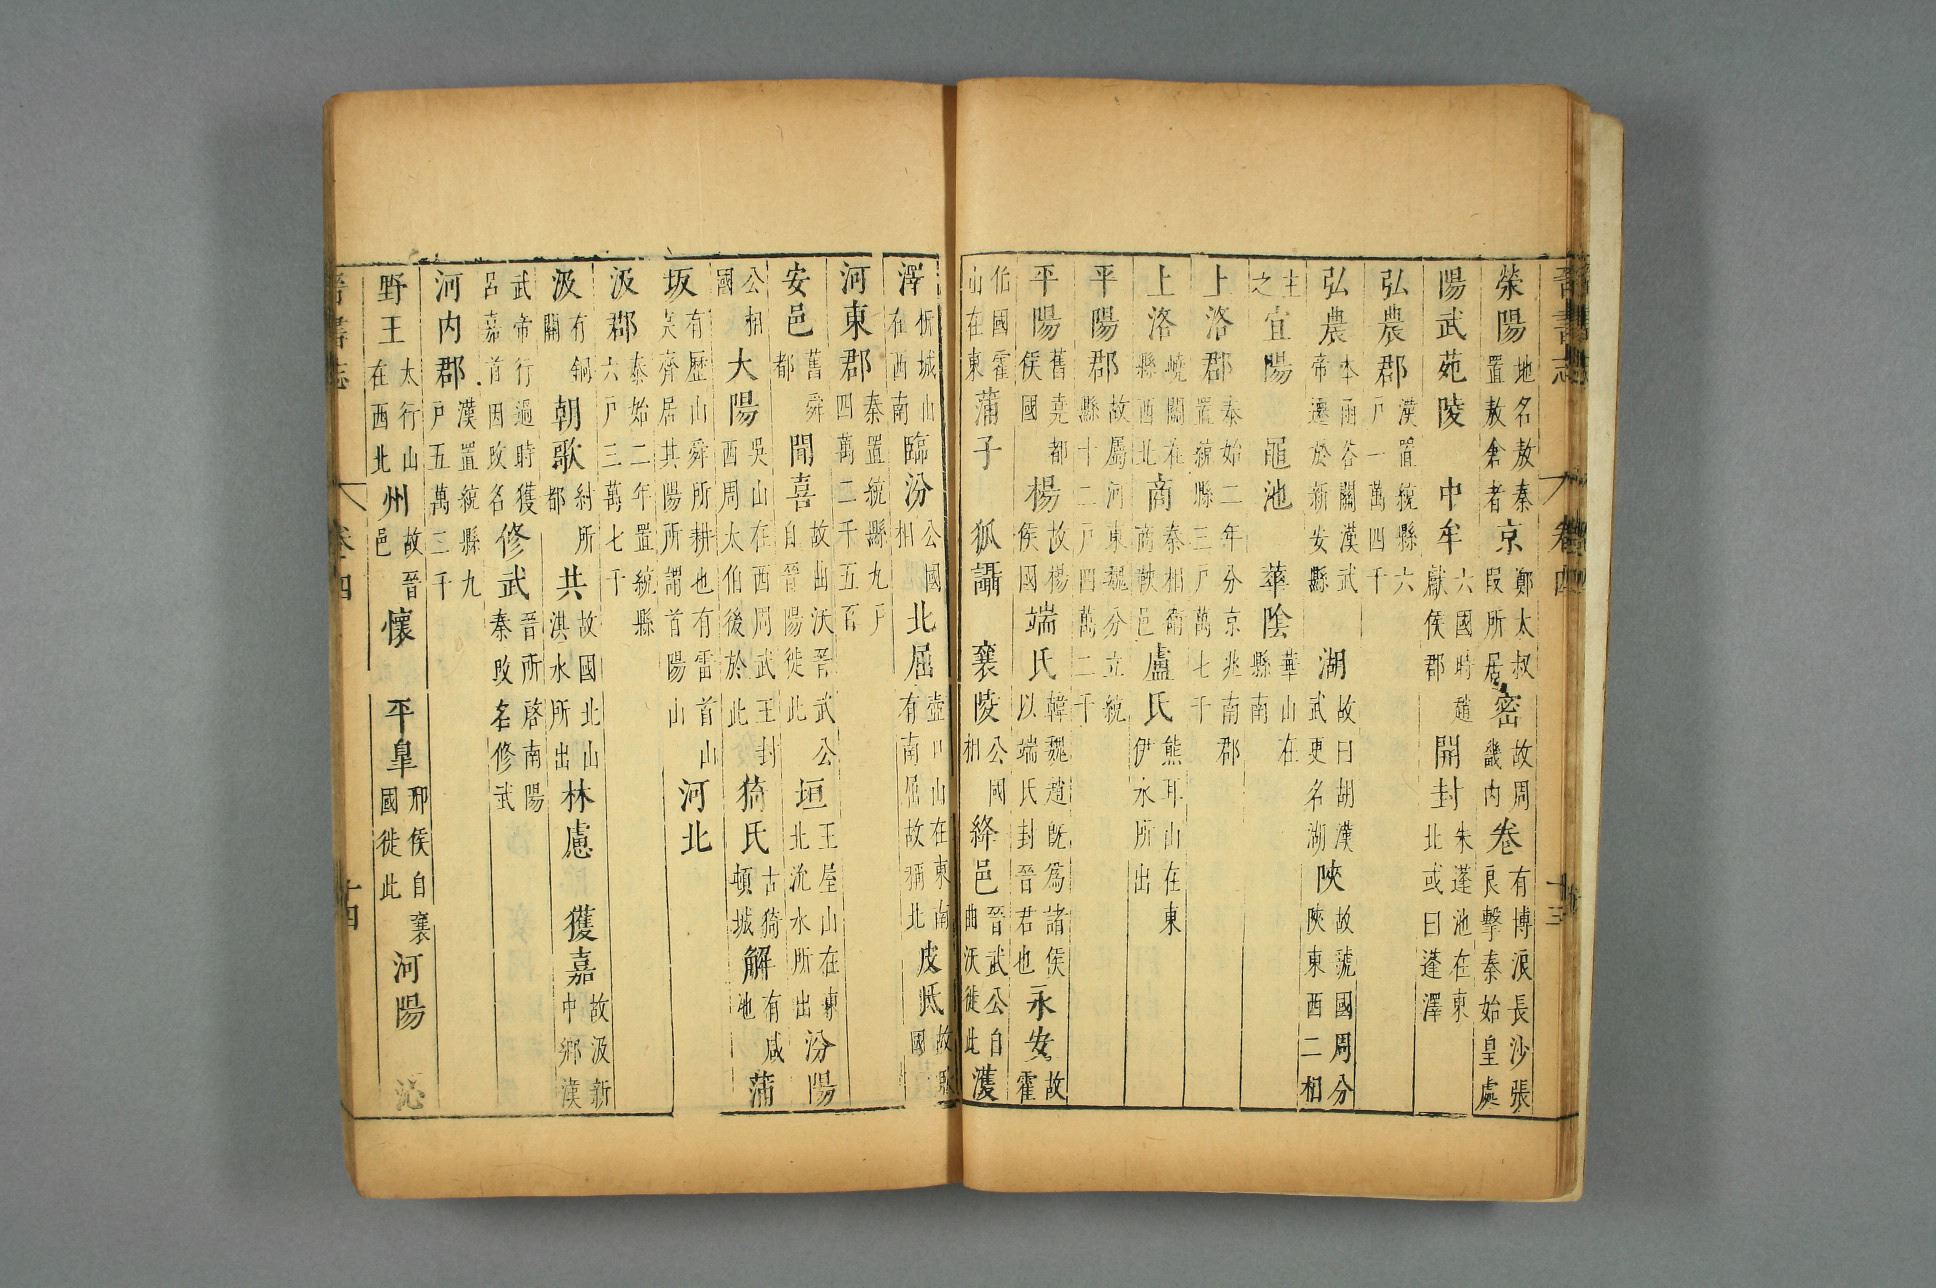 晉書志 卷十四 十三
滎陽地名敖秦置敖倉者京鄭太叔段所居密故周畿內卷有博浪長沙張良擊秦始皇處
陽武苑陵 中牟六國時趙獻侯郡開封朱蓬池在東北或曰蓬澤
弘農郡漢置統縣六戶一萬四千
弘農本函谷關漢武帝遷於新安縣湖故曰胡漢武更名湖陜故虢國周分陜東西二相
主之宜陽 黽池 華陰華山在縣南
上洛郡泰始二年分京兆南郡置統縣三戶萬七千
上洛嶢關在縣西北商秦相衛鞅邑盧氏熊耳山在東伊水所出
平陽郡故屬河東魏分立統縣十二戶四萬二千
平陽舊堯都侯國楊故楊侯國端氏韓魏趙旣爲諸侯以端氏封晉君也永安故霍
伯國霍山在東蒲子 狐讘 襄陵公國相絳邑晉武公自曲沃徙此濩
澤析城山在西南臨汾公國相北屈壺口山在東南有南屈故稱北皮氏故耿國
河東郡秦置統縣九戶四萬二千五百
安邑舊舜都聞喜故曲沃晉武公自晉陽徙此垣王屋山在東北沇水所出汾陽
公相國大陽吳山在西周武王封太伯後於此猗氏古猗頓城解有咸池蒲
坂有歷山舜所耕也有雷首山夷齊居其陽所謂首陽山河北
汲郡泰始二年置統縣六戶三萬七千
汲有銅關朝歌紂所都共故國北山淇水所出林慮 獲嘉故汲新中鄉漢
武帝行過時獲呂嘉首因改名修武晉所啓南陽秦改名修武
河內郡漢置統縣九戶五萬三千
野王太行山在西北州故晉邑懷 平皐邢侯自襄國徙此河陽 沁
晉書志 卷十四 十四